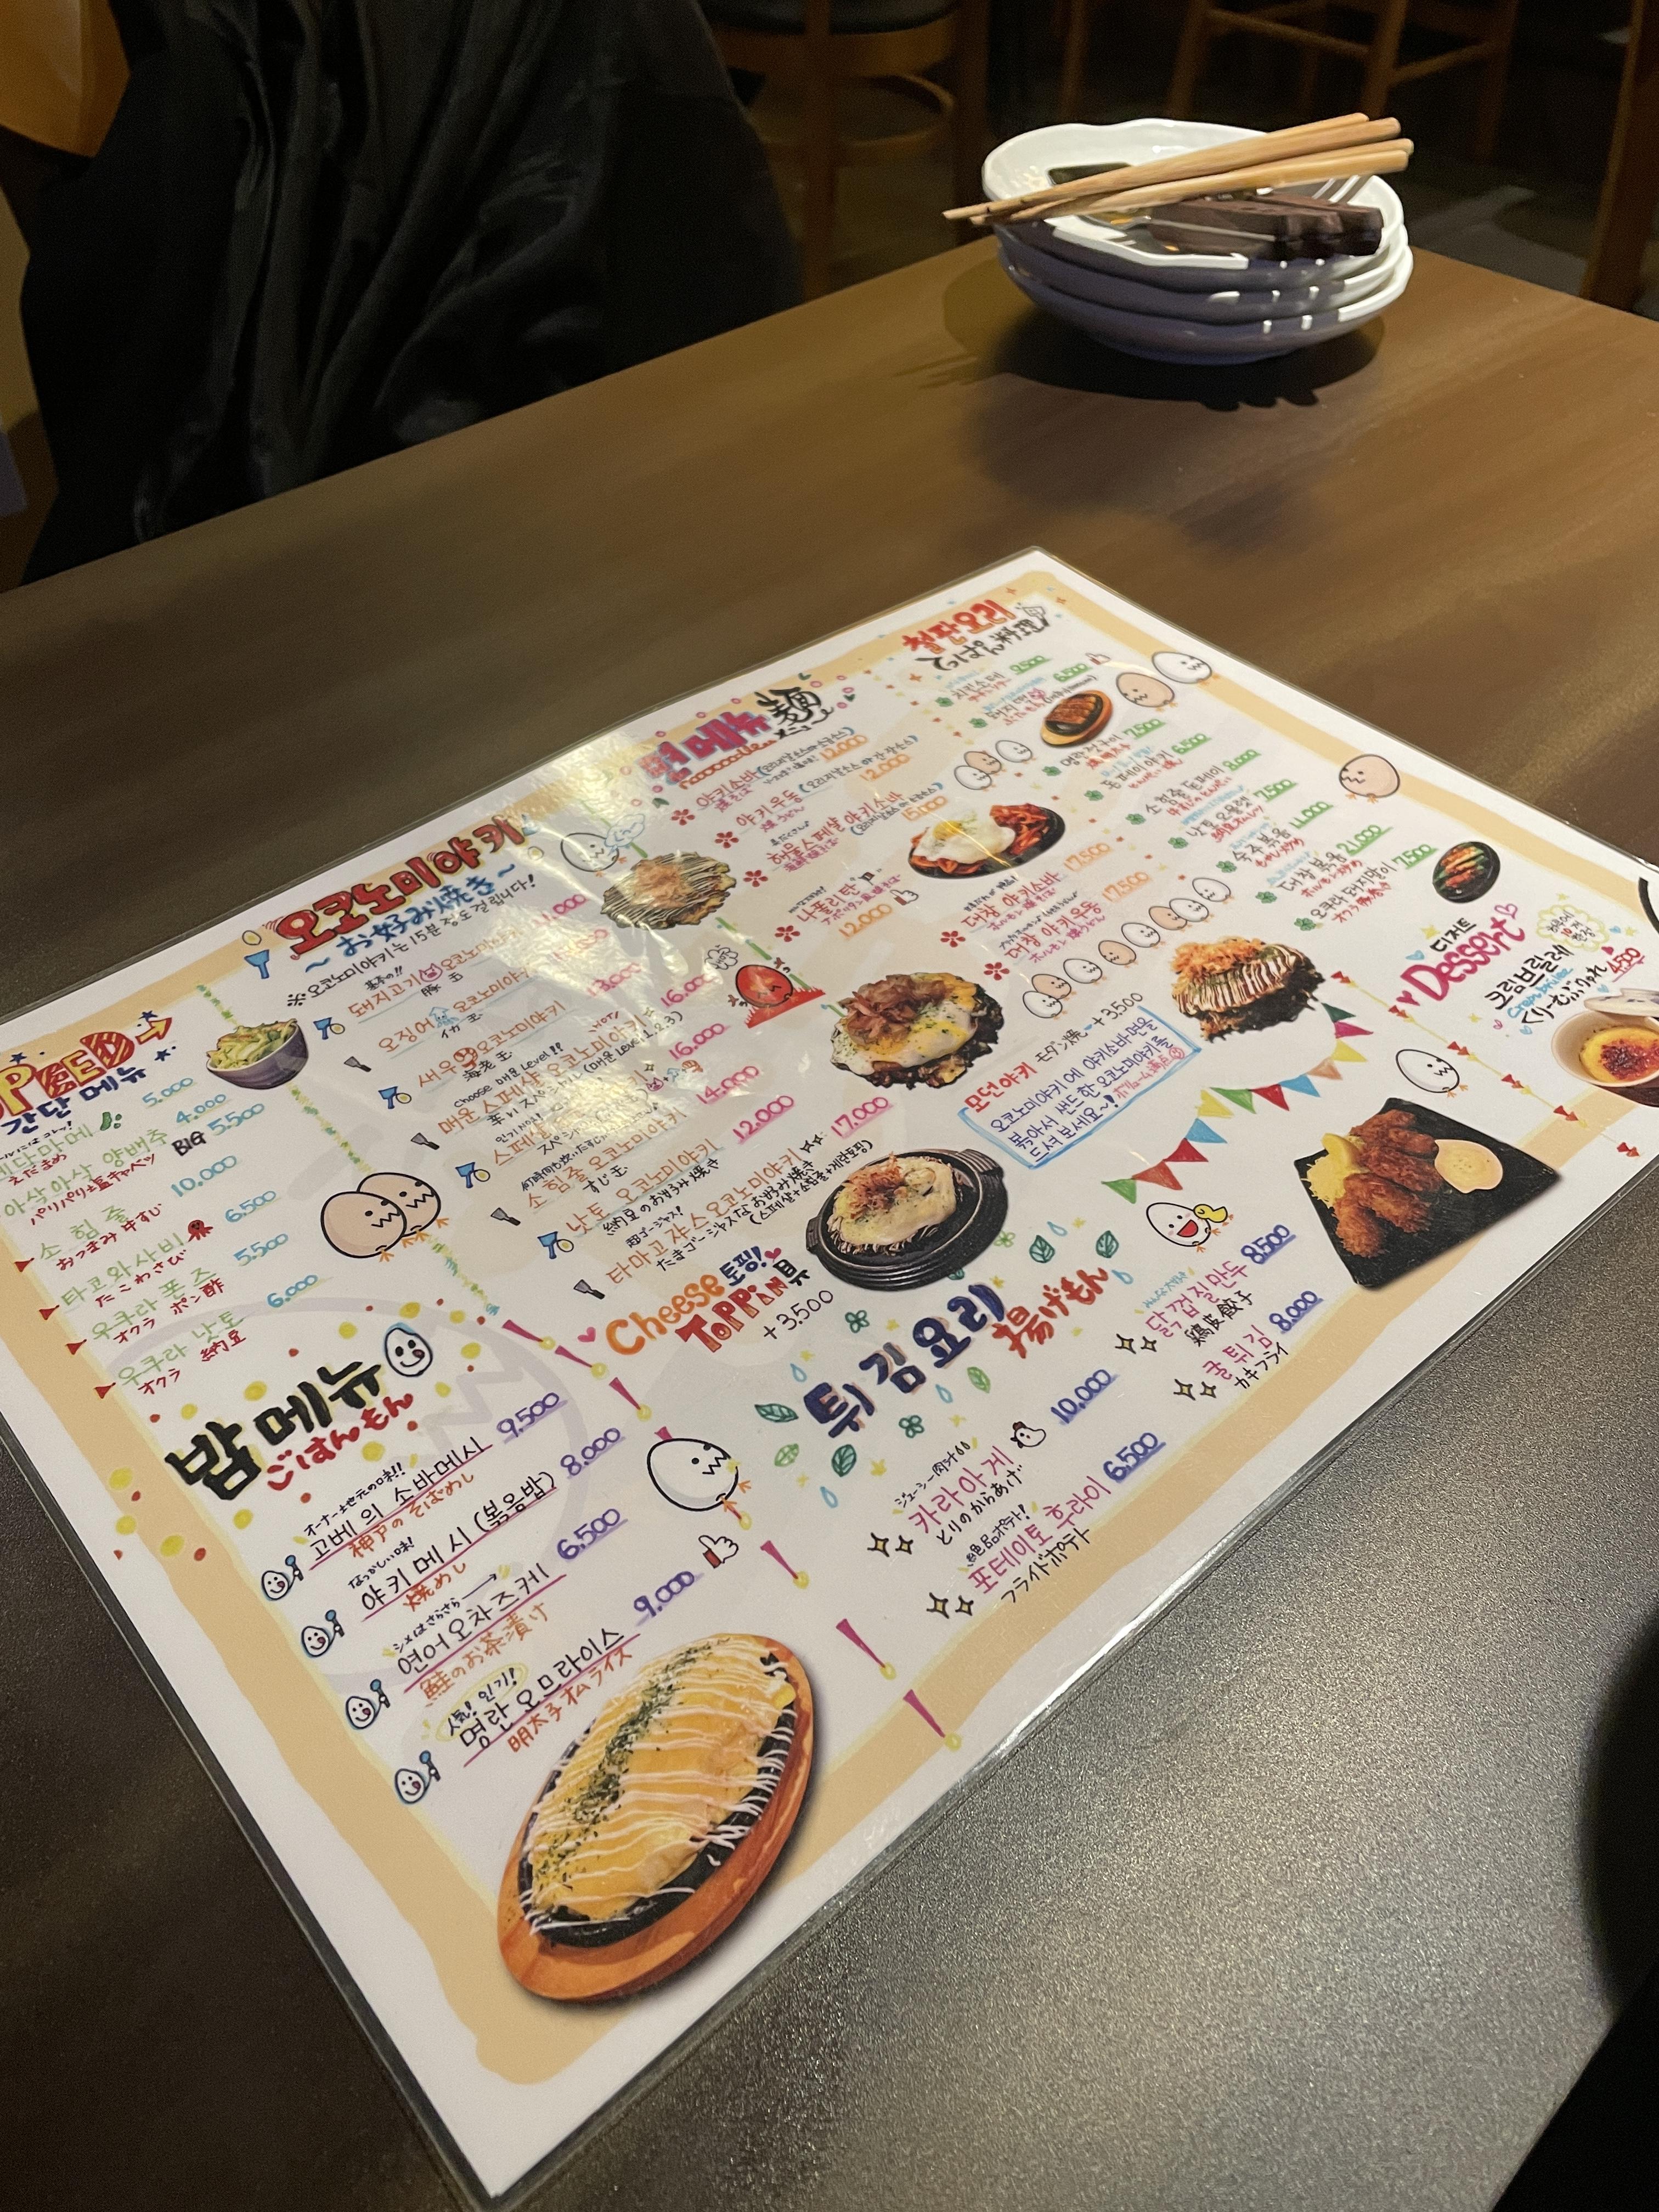 간단 메뉴
5.000
아삭아삭 양배추
4.000
パリパリ塩キャベツ
BIG 5.500
소 힘줄
10.000
おつまみ牛すじ
타코와사비
6.500
たこわさび
오쿠라 폰즈
5.500
オクラ ポン酢
오쿠라 낫토
6.000
オクラ 納豆
밥 메뉴
ごはんもん
オーナー地元の味!!
고베의 소바메시
9.500
神戸のそばめし
なつかしい味!
야키메시 (볶음밥)
8.000
焼めし
シメはさらさら
연어 오차즈케
6.500
鮭のお茶漬け
人気! 인기!
명란 오므라이스
9.000
明太子オムライス
오코노미야키
~お好み焼き~
※오코노미야키는 15분 정도 걸립니다!
돼지고기 오코노미야키
豚玉
오징어 오코노미야키
イカ玉
새우 오코노미야키
13.000
海老玉
Choose 매운 Level!!
매운 스페샬 오코노미야키
16.000
辛いスペシャル (매운 Level 1.2.3)
16.000
소 힘줄 오코노미야키
14.000
すじ玉
낫토 오코노미야키
12.000
納豆のお好み焼き
超ゴージャス!
타마고쟈스 오코노미야키
17.000
たまゴージャスなお好み焼き
(스페샬+소힘줄+계란토핑)
Cheese 토핑!
TOPPING
+3.500
면 메뉴
麺メニュー
야키소바
12.000
焼きそば
야키우동
12.000
焼うどん
해물 스페샬 야키소바
15.000
나폴리탄
12.000
대창 야키소바
17.500
대창 야키우동
17.500
모던야키 モダン焼 +3.500
오코노미야키에 야키소바면을
볶아서 샌드한 오코노미야키를
드셔보세요~!
철판요리
てっぱん料理
6.500
명란구이
7.500
돈페이야키
6.500
소힘줄 돈페이
9.000
낫토 오믈렛
7.500
숙주볶음
11.000
대창볶음
21.000
오쿠라 돼지말이
7.500
디저트
Dessert
크림브륄레
4.500
튀김요리
揚げもん
ジューシー肉汁
카라아게
10.000
とりのからあげ
絶品ポテト!
포테이토 후라이
6.500
フライドポテト
닭껍질만두
8.500
鶏皮餃子
굴튀김
8.000
カキフライ